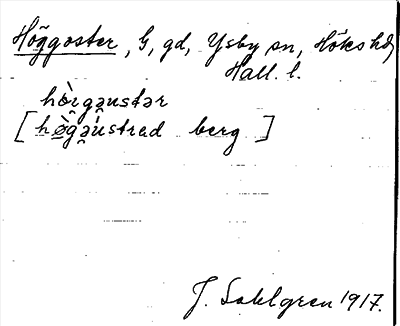 Höggaster, G, gd, Ysby sn, Höks hd
Hall. l.
hòrgəustər
[hø̀gəústrad berg]
J. Sahlgren 1917.